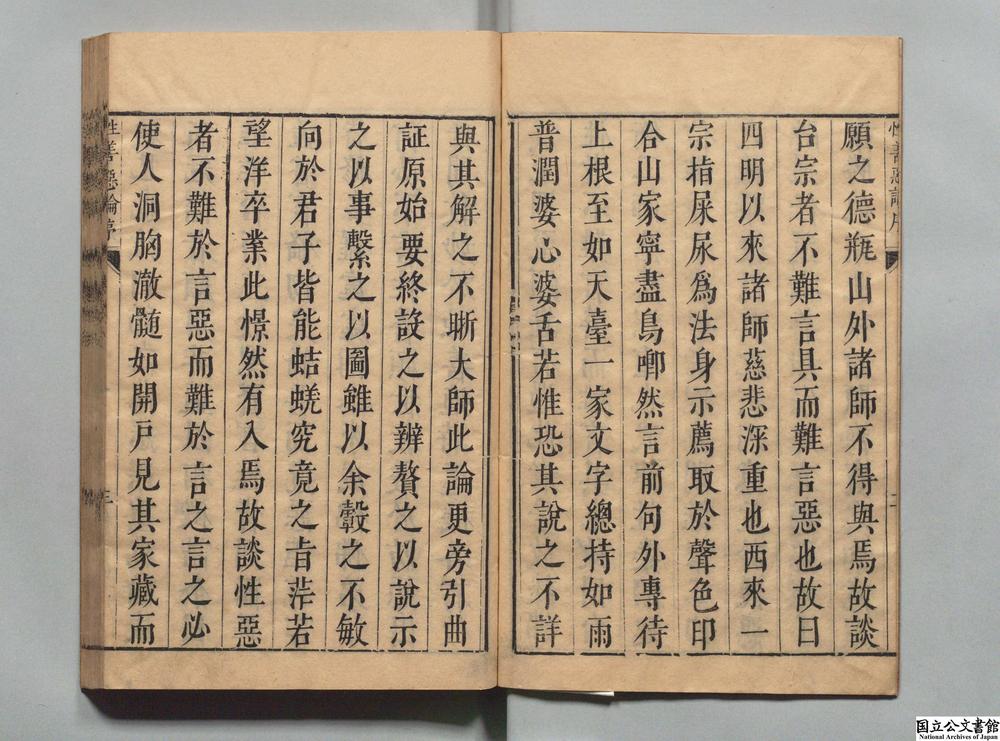 願之德瓶山外諸師不得與焉故談
台宗者不難言具而難言惡也故曰
四明以來諸師慈悲深重也西來一
宗指屎尿為法身示薦取於聲色印
合山家寧盡鳥啣然言前句外專待
上根至如天臺一家文字總持如雨
普潤婆心婆舌若惟恐其說之不詳
與其解之不晰大師此論更旁引曲
証原始要終設之以辨贅之以說示
之以事繫之以圖雖以余瞉之不敏
向於君子皆能蛣蜣究竟之旨茫若
望洋卒業此憬然有入焉故談性惡
者不難於言惡而難於言之言之必
使人洞胸澈髓如開戶見其家藏而
性善惡論序
二
性善惡論序
三
国立公文書館
National Archives of Japan